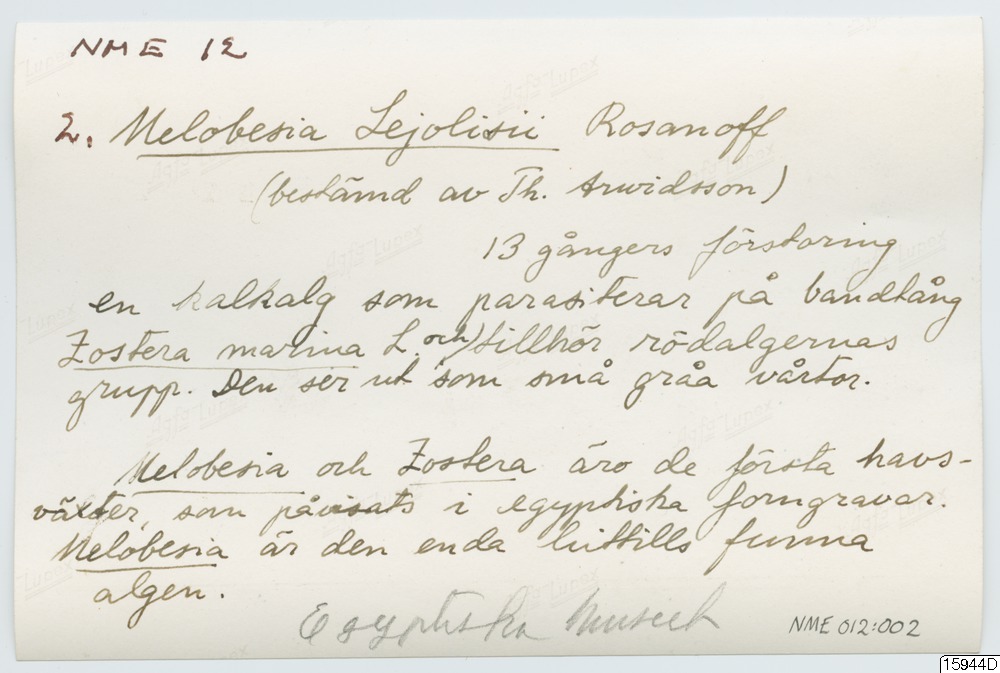 NME 12
2. Melobesia Lejolisii Rosanoff
(bestämd av Th. Arwidsson)
13 gångers förstoring
en kalkalg som parasiterar på bandtång
Zostera marina L. och tillhör rödalgernas
grupp. Den ser ut som små gråa vårtor.
Melobesia och Zostera äro de första havs-
växter, som påvisats i egyptiska forngravar.
Melobesia är den enda hittills funna
algen.
Egyptiska Museet
NME 012:002
15944D